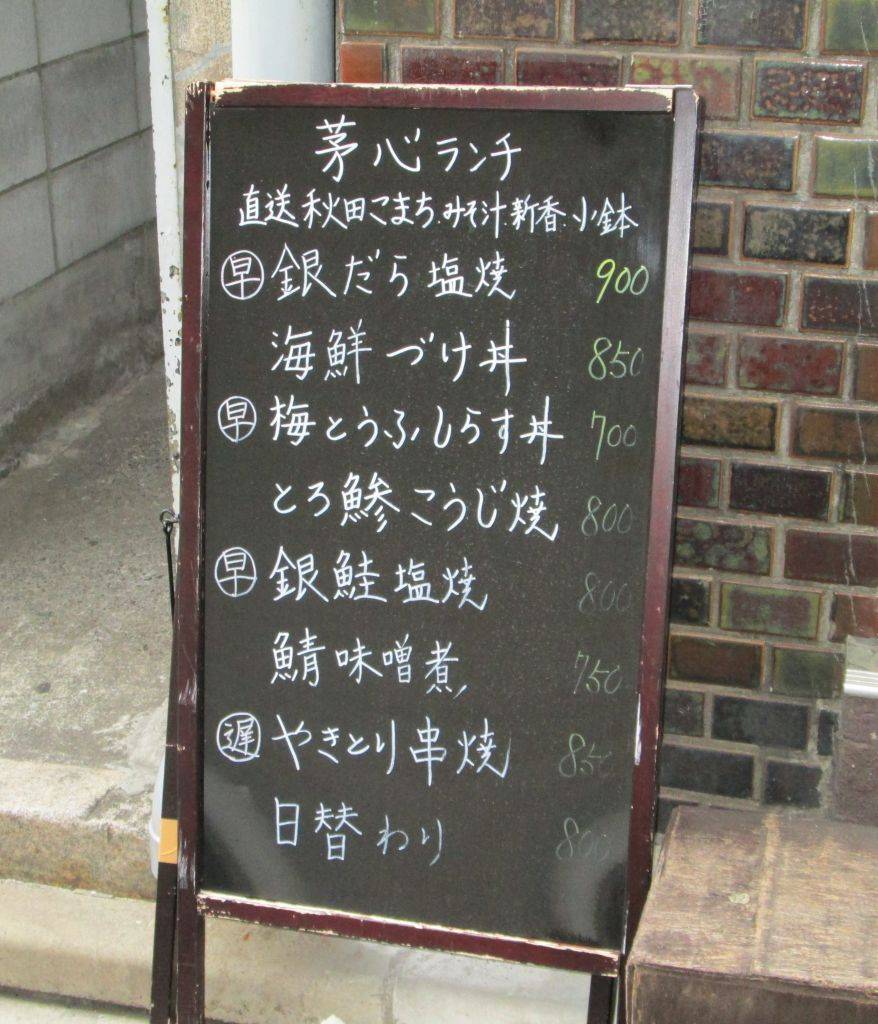 茅心ランチ
直送秋田こまち.みそ汁.新香.小鉢
早 銀だら塩焼 900
海鮮づけ丼 850
早 梅とうふしらす丼 700
とろ鯵こうじ焼 800
早 銀鮭塩焼 800
鯖味噌煮 750
遅 やきとり串焼 850
日替わり 800